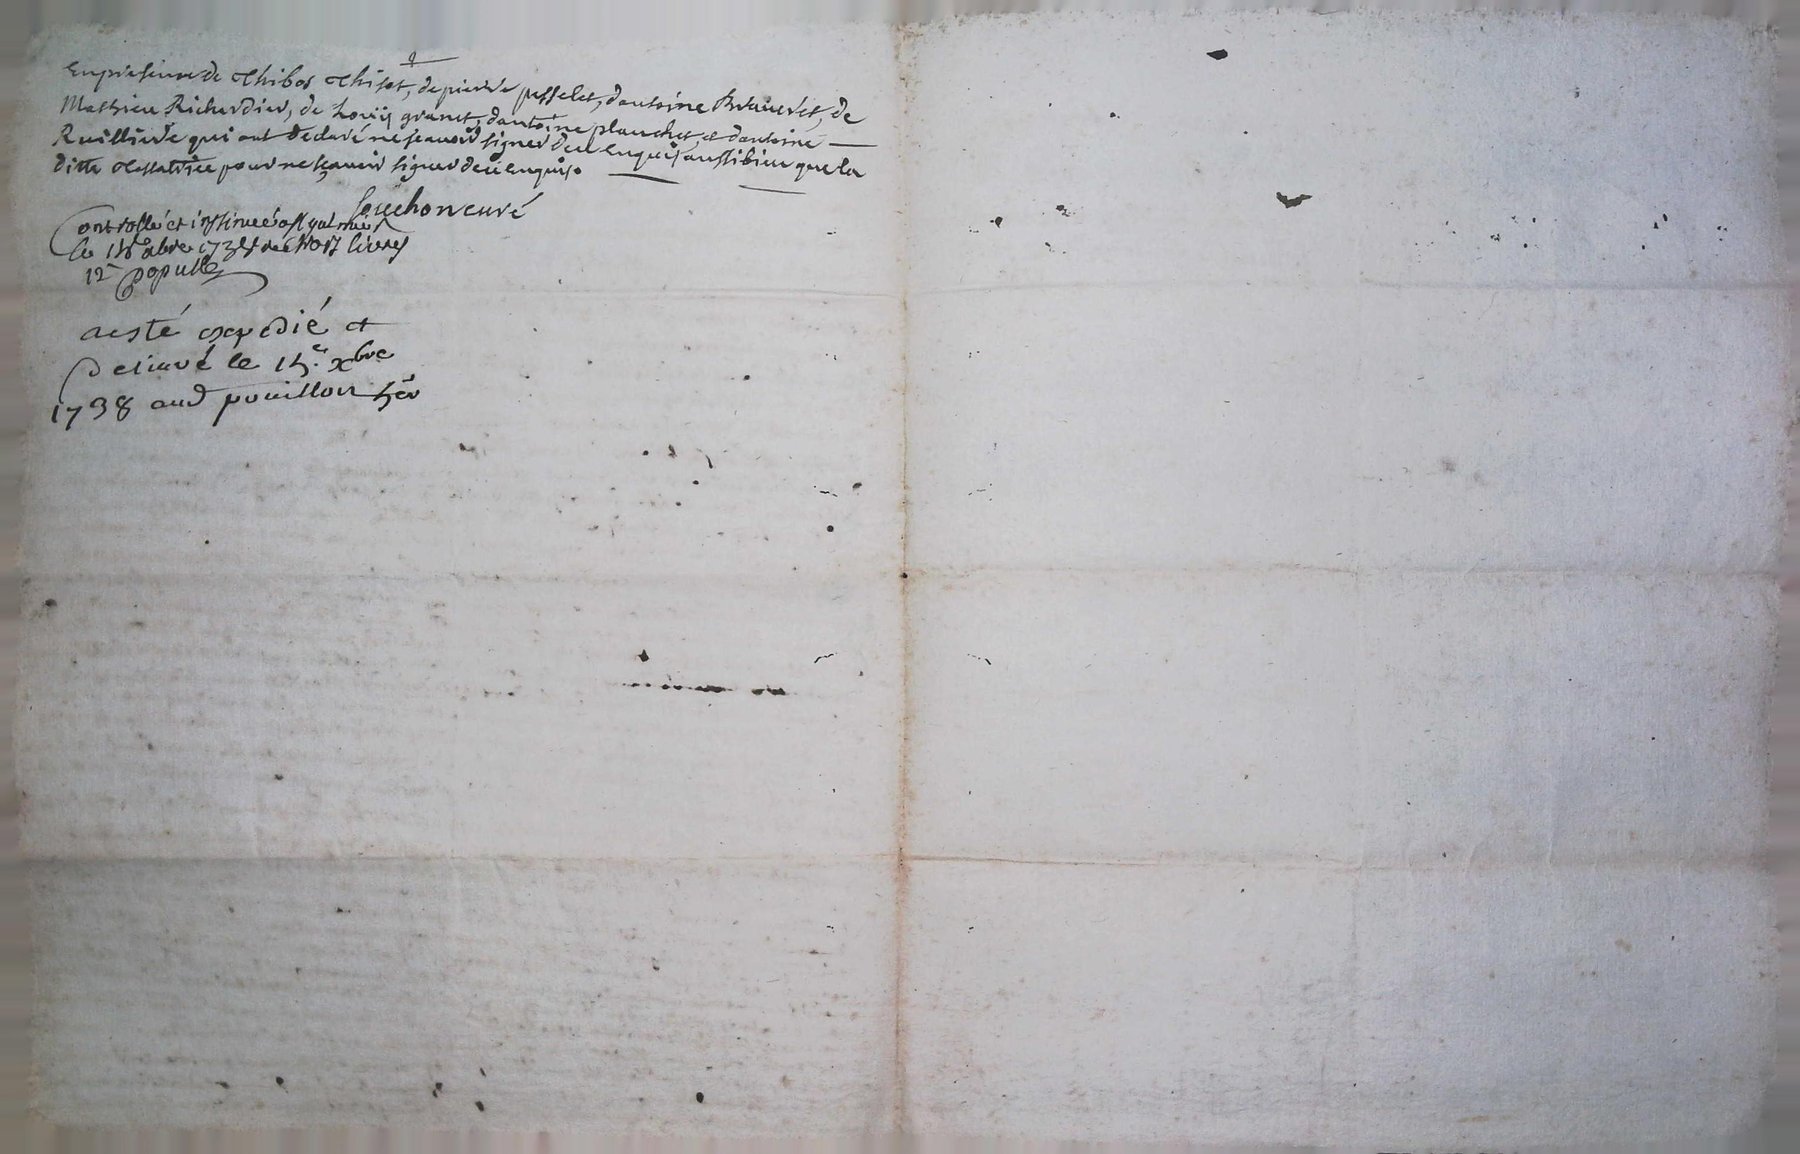 En presence de Thibos Thisot, de pierre pesselet, dantoine Brunerot, de
Mathieu Richerdier, de Louïj granet, dantoine planchet, et dantoine
Ruillierde qui ont declaré ne scauoir signer deu enquis aussi bien que la
ditte testatrice pour ne sçauoir signer deüe enquise.
Souchon curé
Controllé et insinué a
le 15 xbre 1738 livres
12 s populle
aesté expedié et
Deliuré le 15.e xbre
1738 aud pouillon